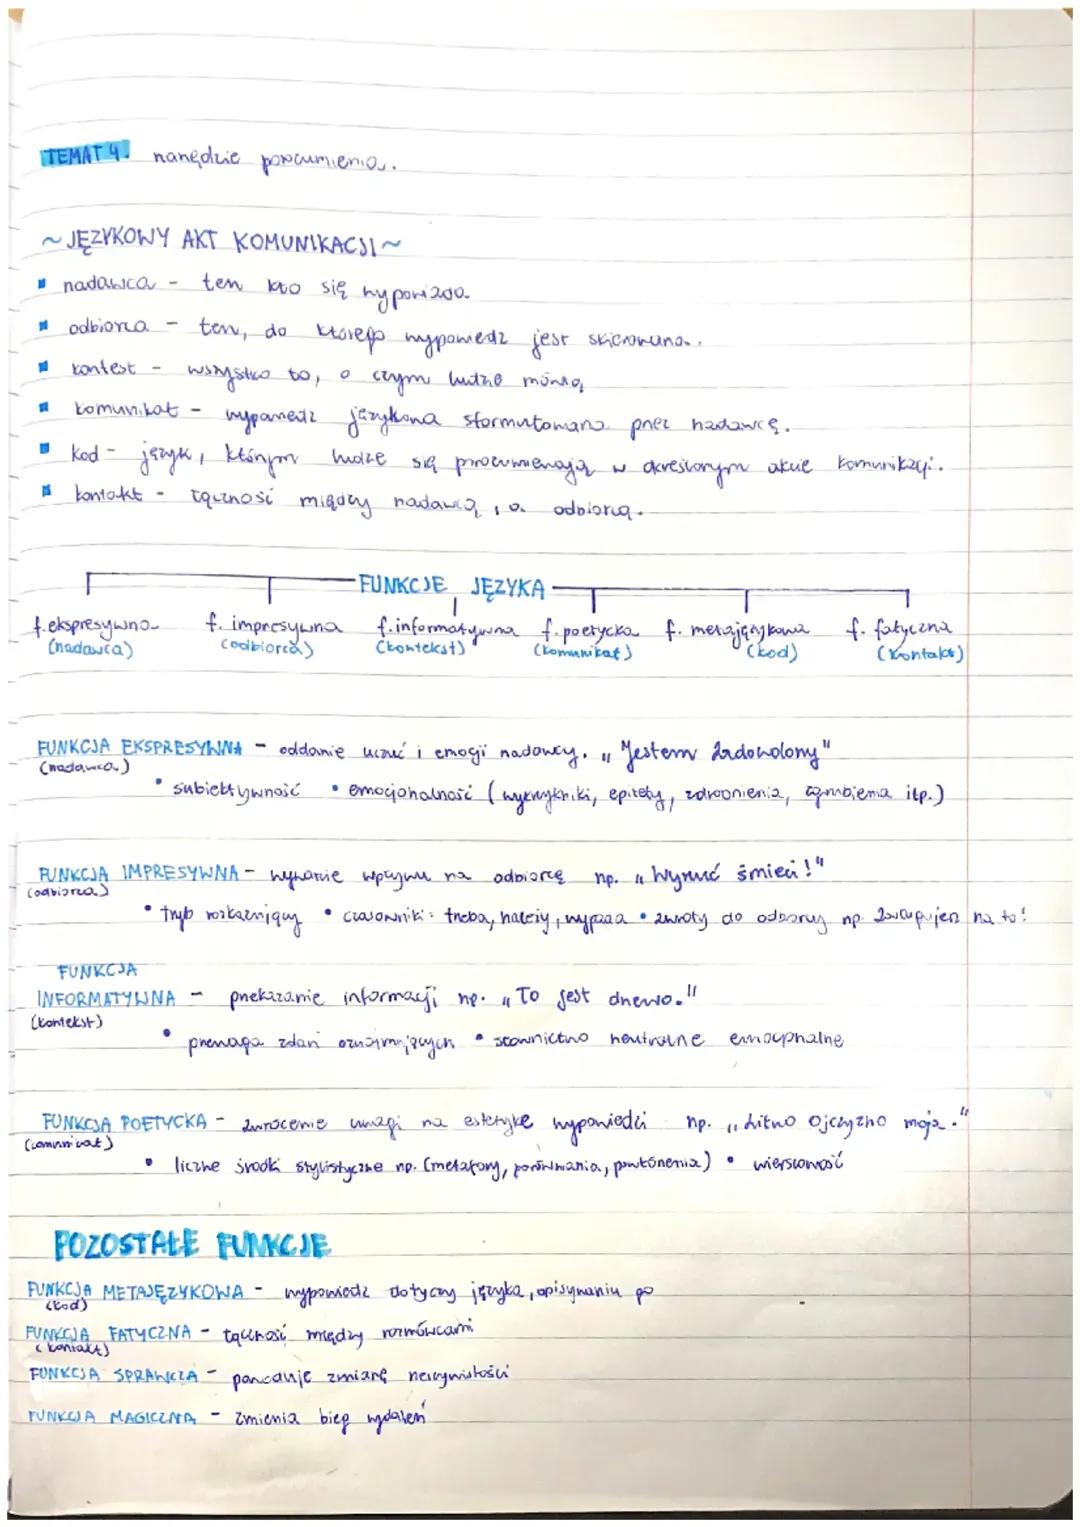 TEMAT 4. narzędzie porozumienia.
~ JĘZYKOWY AKT KOMUNIKACJI ~
nadawca - ten kto się wypowiada
odbiorca - ten, do którego wypowiedź jest skierowana.
kontest - wszystko to, o czym ludzie mówią
komunikat - wypowiedź językowa sformułowana przez nadawcę.
kod - język, którym ludzie się porozumiewają w określonym akcie komunikacji.
kontakt - łączność między nadawcą, a odbiorcą.
FUNKCJE JĘZYKA
f. ekspresywna f. impresywna f. informatywna f. poetycka f. metajęzykowa f. fatyczna
(nadawca) (odbiorca) (kontekst) (komunikat) (kod) (kontakt)
FUNKCJA EKSPRESYWNA - oddanie uczuć i emocji nadawcy. „Jestem zadowolony"
(nadawca)
• subiektywność • emocjonalność (wykrzykniki, epitety, zdrobnienia, zgrubienia itp.)
FUNKCJA IMPRESYWNA - wywarcie wpływu na odbiorcę np. „Wyrzuć śmieci!"
(odbiorca)
• tryb rozkazujący • czasowniki: trzeba, należy, wypada • zwroty do odbiorcy np. na to!
FUNKCJA
INFORMATYWNA - przekazanie informacji np. „To jest drzewo."
(kontekst)
• przewaga zdań oznajmujących • słownictwo neutralne emocjonalne
FUNKCJA POETYCKA - zwrócenie uwagi na estetykę wypowiedzi np. „Litwo ojczyzno moja."
(komunikat)
• liczne środki stylistyczne np. (metafory, porównania, powtórzenia) • wierszowość
POZOSTAŁE FUNKCJE
FUNKCJA METAJĘZYKOWA - wypowiedź dotyczy języka, opisywaniu go
(kod)
FUNKCJA FATYCZNA - łączność między rozmówcami
(kontakt)
FUNKCJA SPRAWCZA - powoduje zmianę rzeczywistości
FUNKCJA MAGICZNA - zmienia bieg wydarzeń